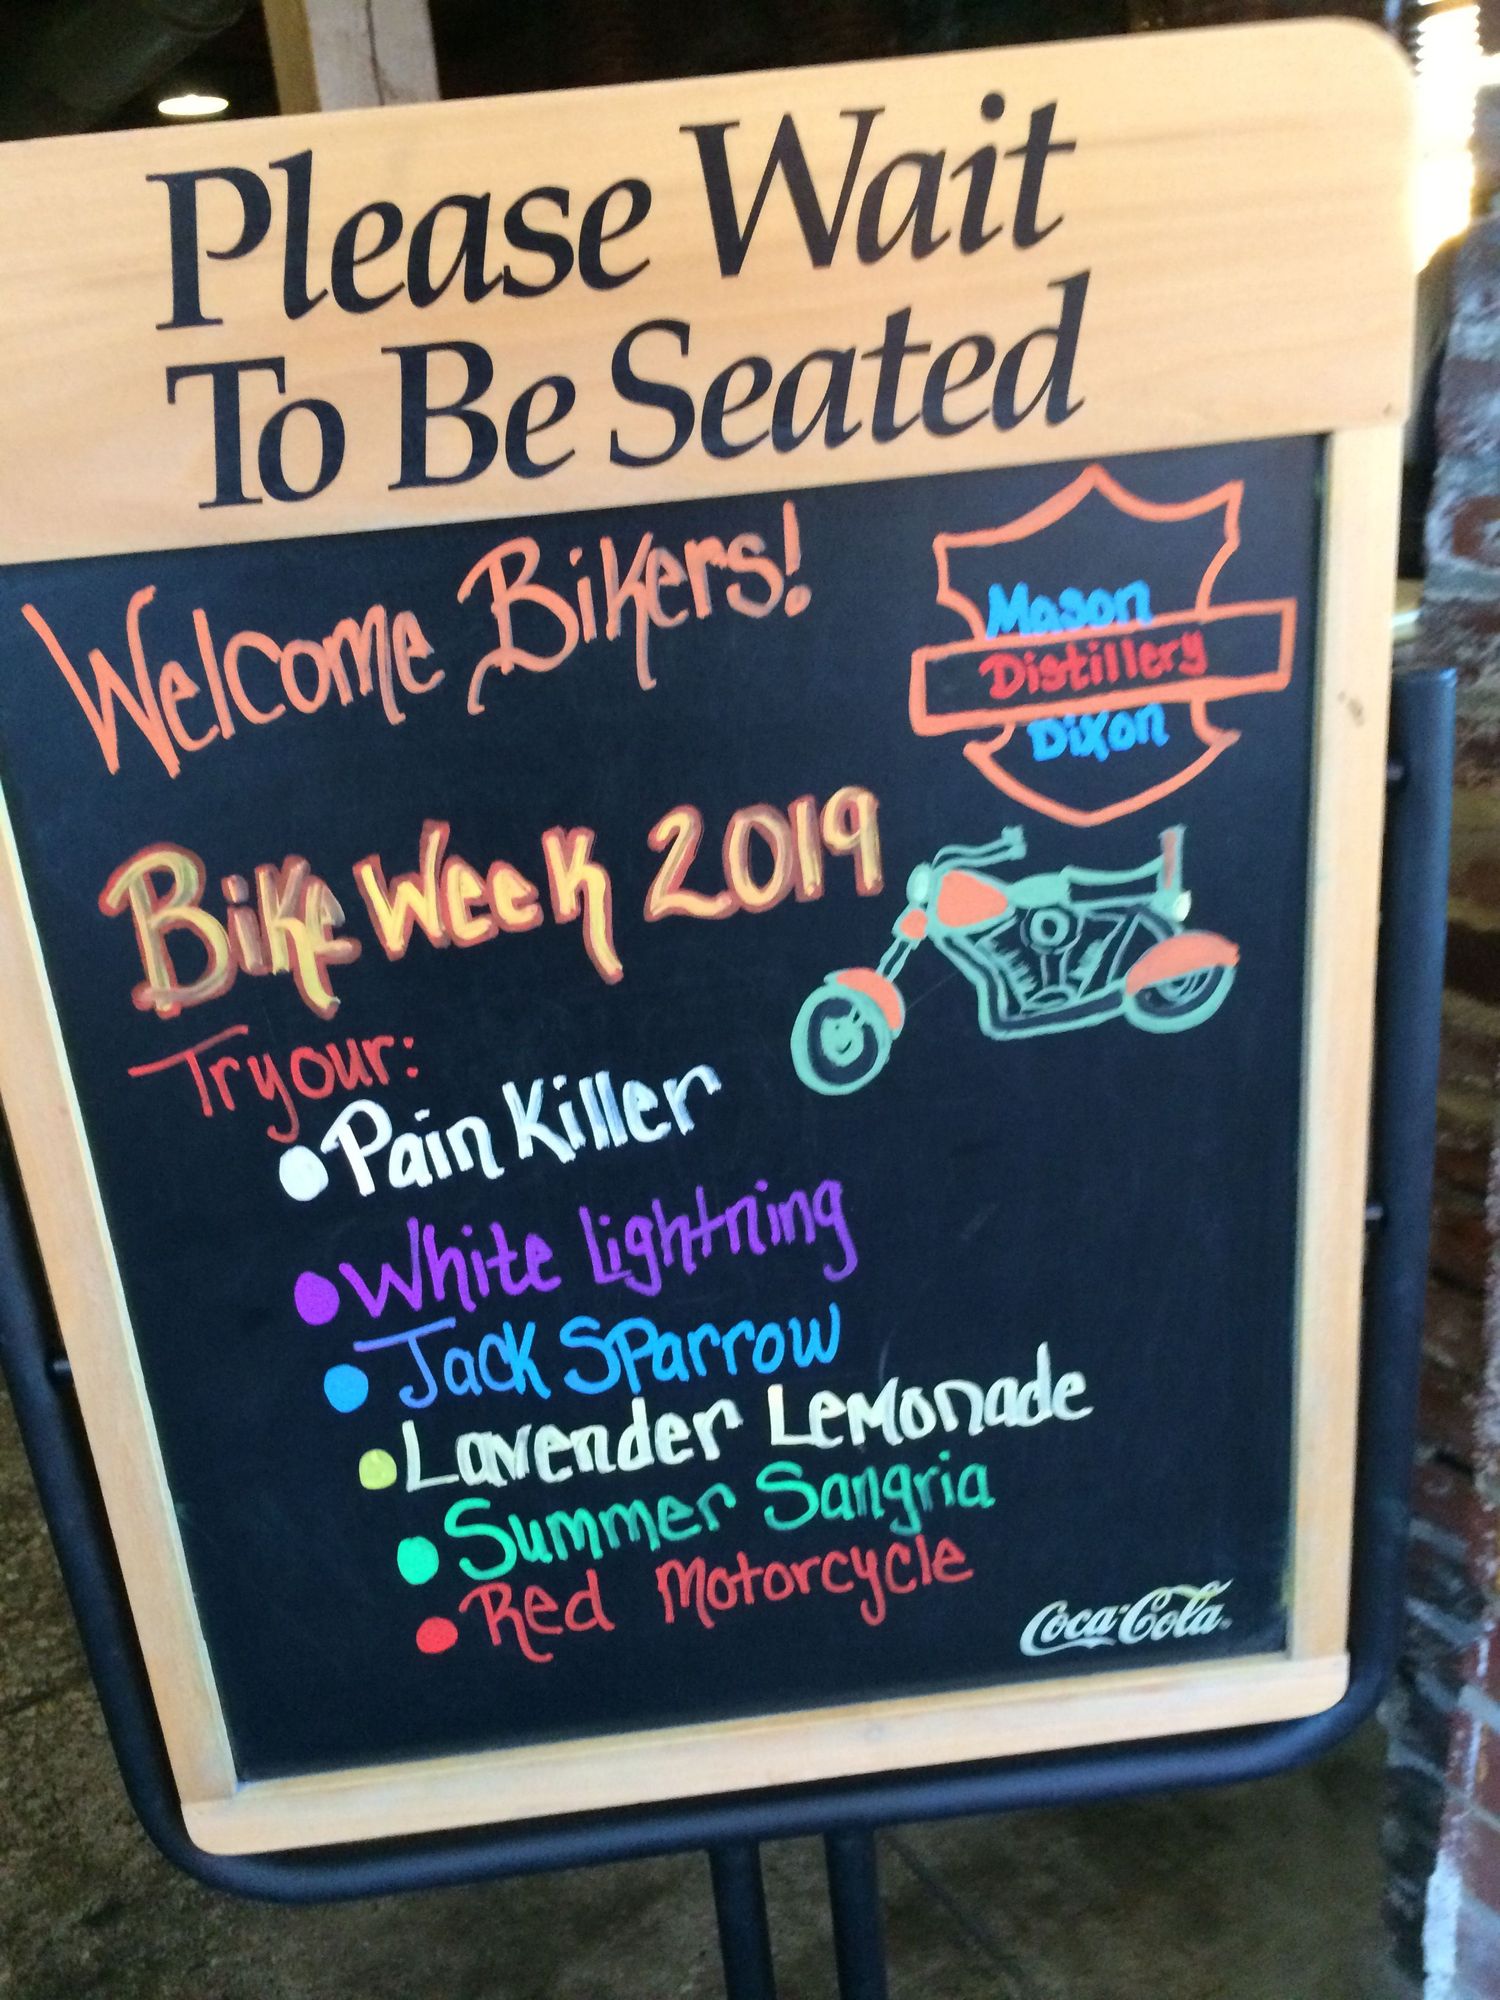 Please Wait
To Be Seated
Welcome Bikers!
Mason
Distillery
Dixon
Bike Week 2019
Try our:
• Pain Killer
• White Lightning
• Jack Sparrow
• Lavender Lemonade
• Summer Sangria
• Red Motorcycle
Coca-Cola